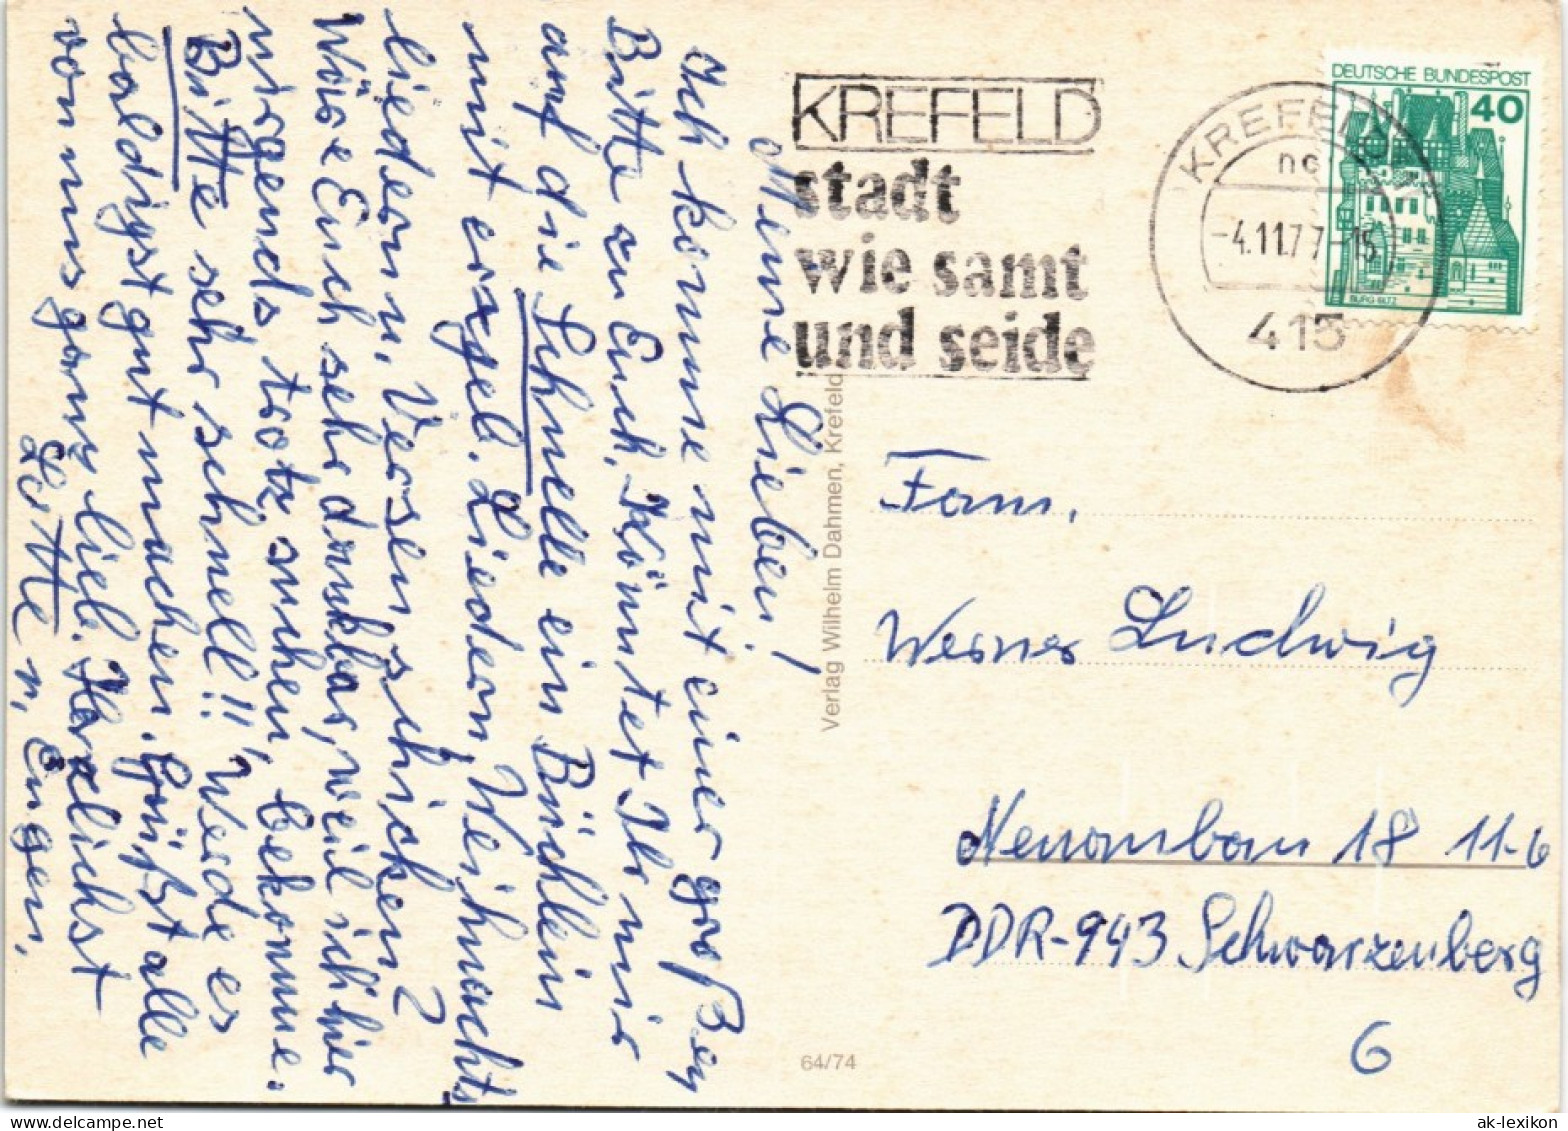 Meine Lieben!
Ich komme mit einer großen
Bitte zu Euch. Könntet Ihr mir
auf die Schnelle ein Büchlein
mit erzgeb. Liedern, Weihnachts
liedern, Versen schicken?
Wäre Euch sehr dankbar, weil ich hier
nirgends, trotz suchen, bekomme.
Bitte sehr schnell!! Werde es
baldigst gut machen. Grüßt alle
von uns ganz lieb. Herzlichst
Lotte n, Eugen.
KREFELD
stadt
wie samt
und seide
KREFELD
nc
-4.11.77-15
415
DEUTSCHE BUNDESPOST
40
BURG ELTZ
Fam.
Werner Ludwig
Neuanbau 18 11-6
DDR-943 Schwarzenberg
6
Verlag Wilhelm Dahmen, Krefeld
64/74
ak-lexikon